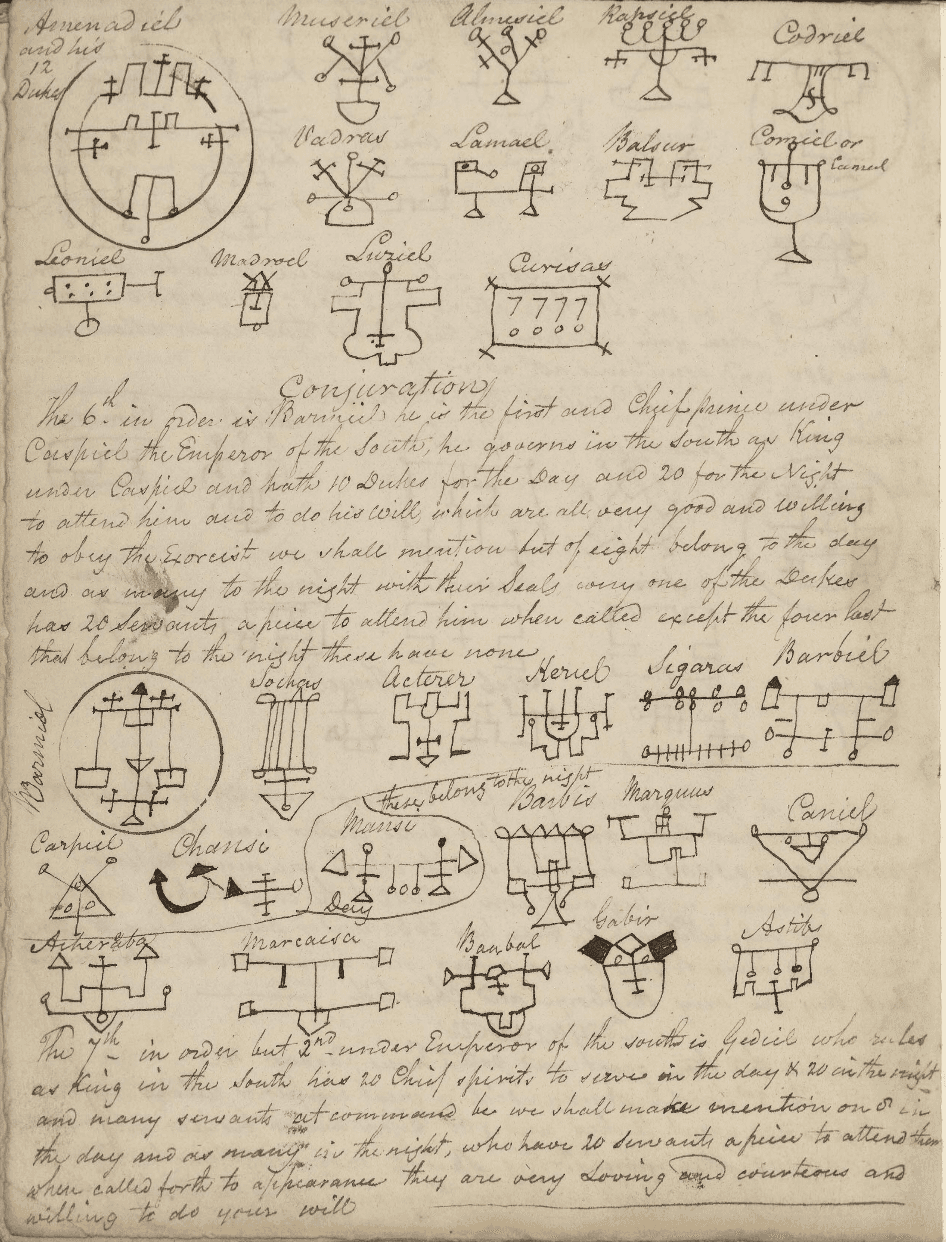 Amenadiel Museriel Almesiel Rapsiel Codriel
and his
12
Dukes
Vadras Lamael Balsur Corziel or
Lamael
Leoniel Madroel Luziel Curisas
7 7 7 7
Conjuration
The 6th in order is Barmiel he is the first and Chief prince under
Caspiel the Emperor of the South, he governs in the South as King
under Caspiel and hath 10 Dukes for the Day and 20 for the Night
to attend him and to do his will, which are all very good and willing
to obey the Exorcist we shall mention but of eight belong to the day
and as many to the night with their Seals every one of the Dukes
has 20 Servants a piece to attend him when called except the four last
that belong to the night these have none
Barmiel
Sochas Acterer Keriel Sigaras Barbiel
these belong to the night
Carpiel Chansi Mansi Barbis Marquus Caniel
Day
Acherata Marcaisa Baabal Gabir Astib
The 7th in order but 2nd under Emperor of the south is Gediel who rules
as King in the South has 20 Chief spirits to serve in the day & 20 in the night
and many servants at command be we shall make mention on 8 in
the day and as many in the night, who have 20 servants a piece to attend them
when called forth to appearance they are very Loving and courteous and
willing to do your will